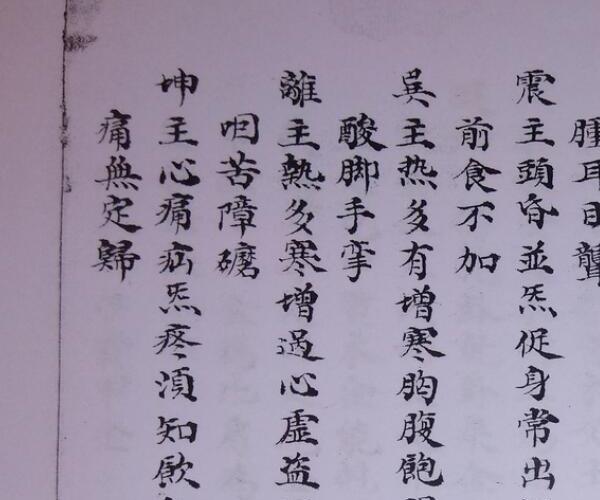 腫耳目聾
震主頭昏並炁促身常出
前食不加
巽主热多有增寒胸腹飽
酸脚手挛
離主熱多寒增過心虛盗
咽苦障礳
坤主心痛疝炁疼湏知歐
痛無定歸